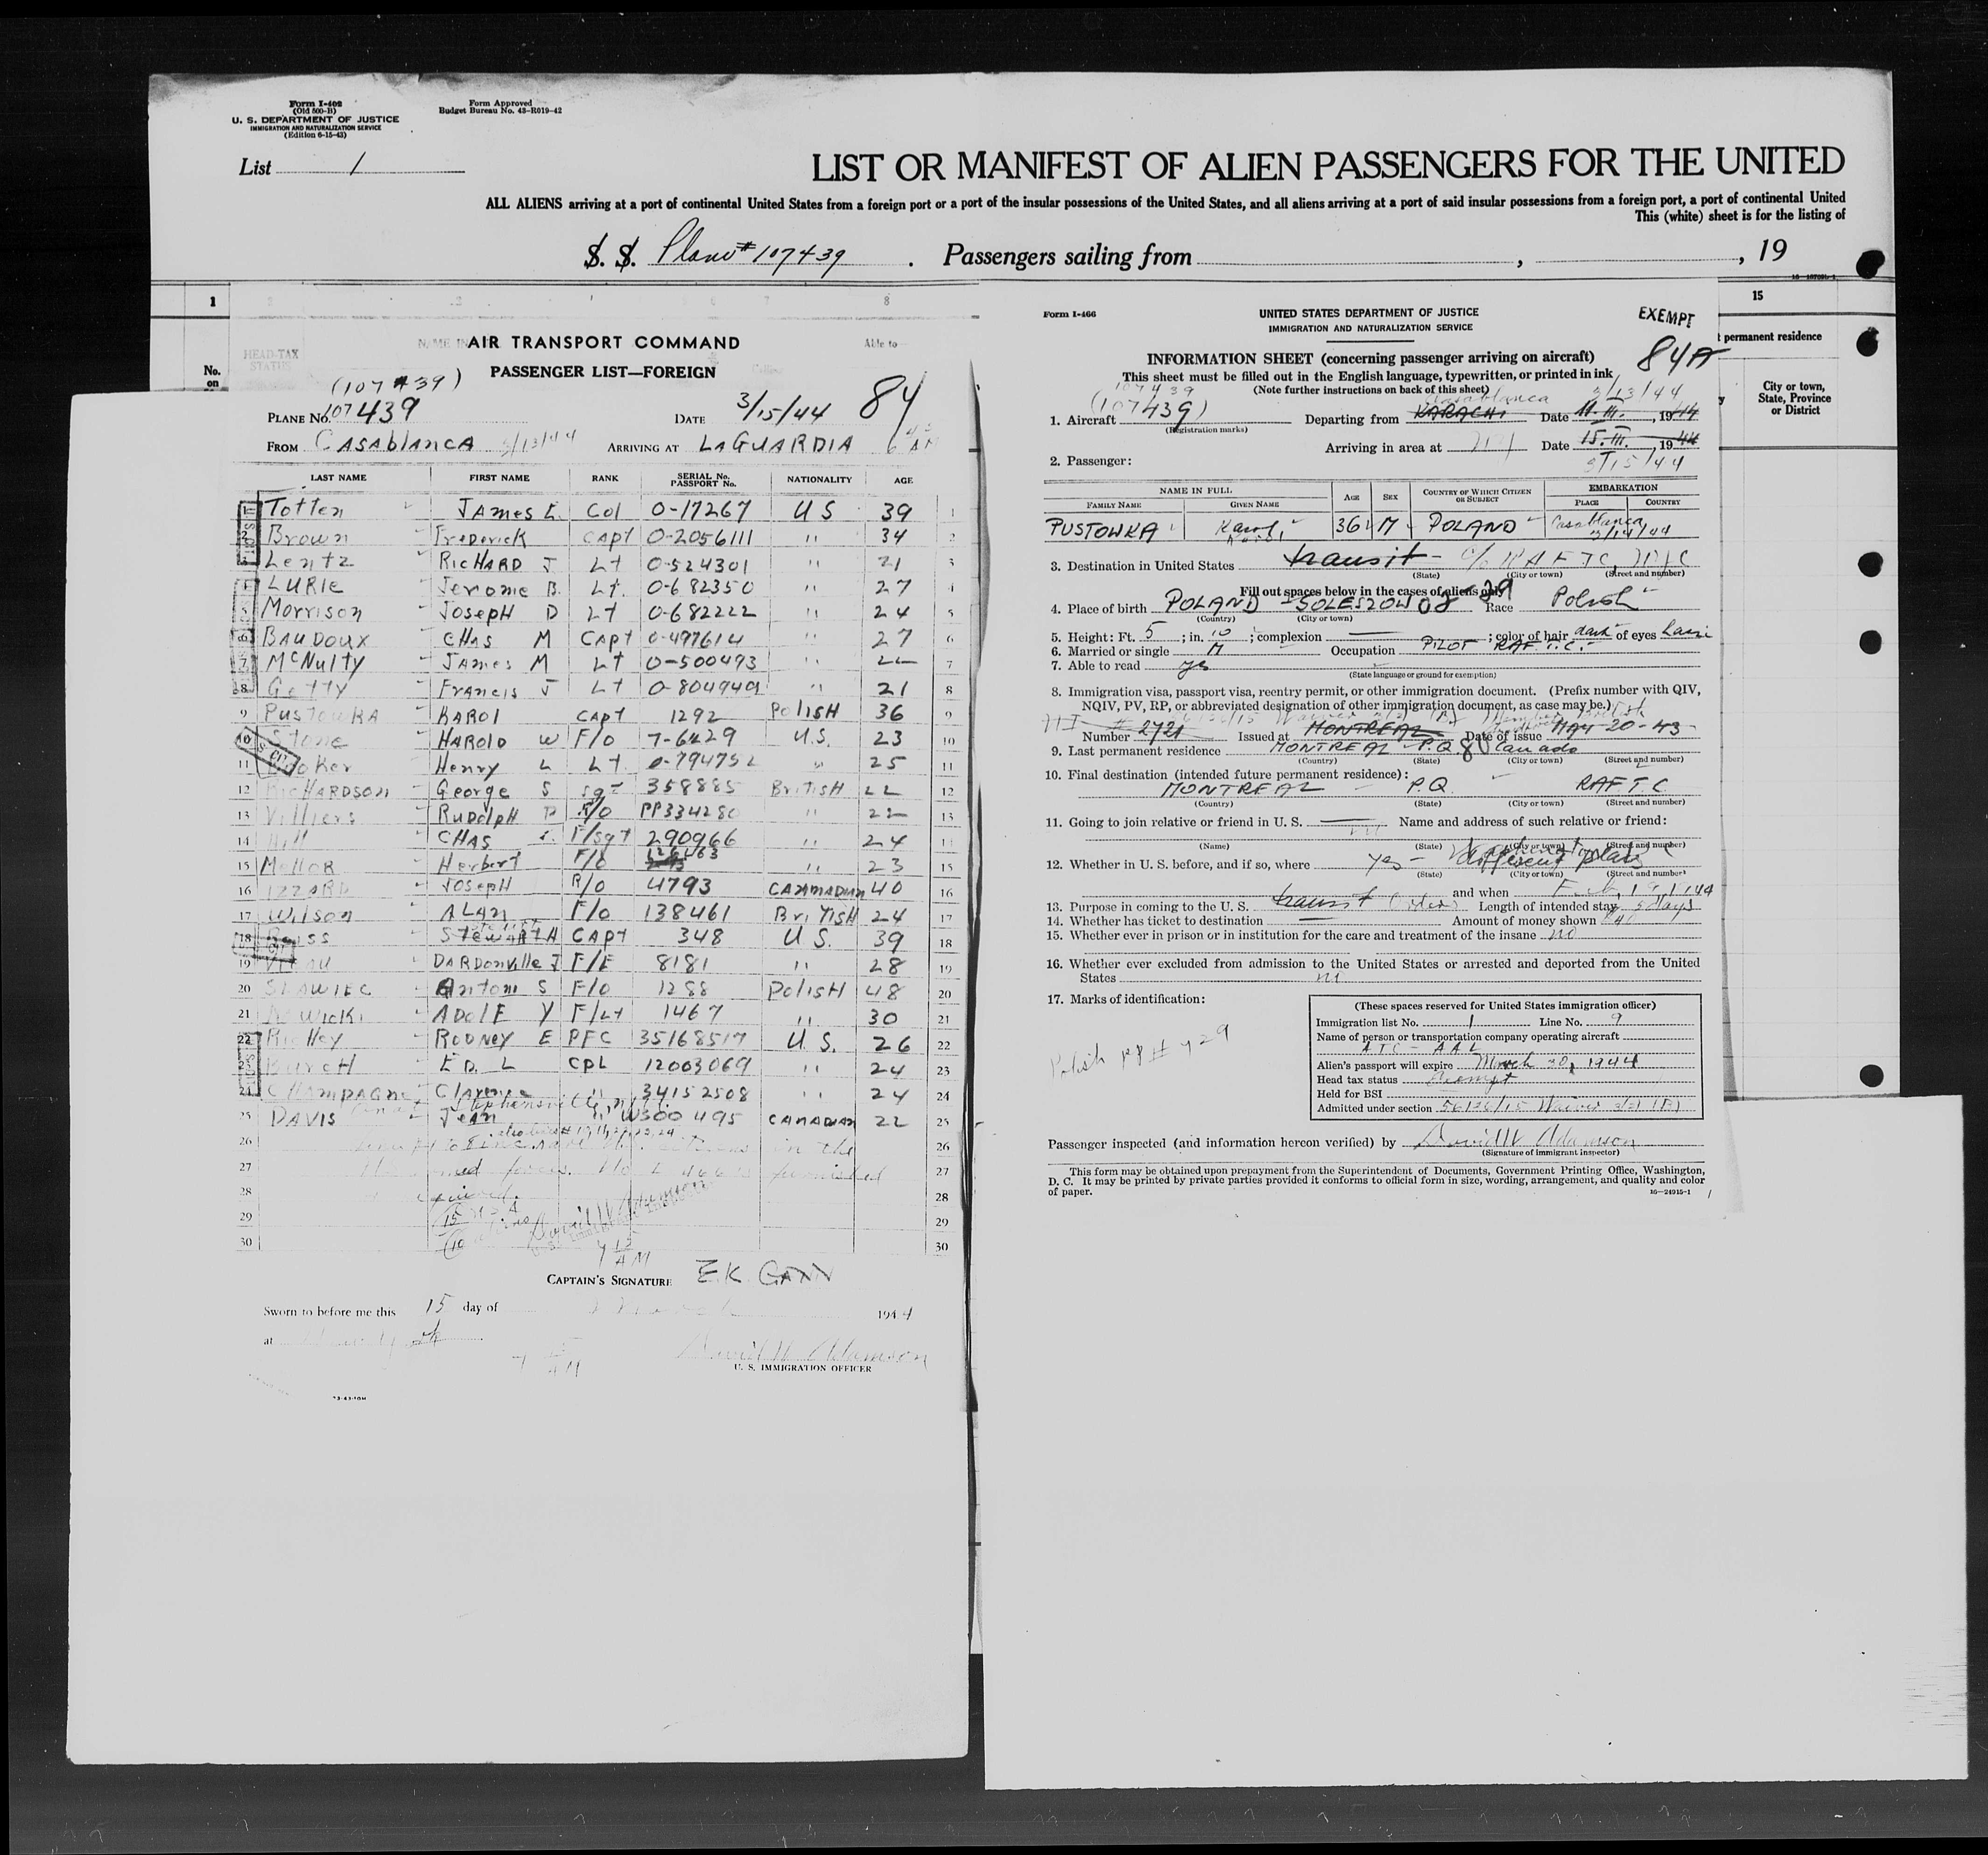 Form I-402
(Old 500-B)
U. S. DEPARTMENT OF JUSTICE
IMMIGRATION AND NATURALIZATION SERVICE
(Edition 6-15-43)
Form Approved
Budget Bureau No. 43-R019-42
List 1
LIST OR MANIFEST OF ALIEN PASSENGERS FOR THE UNITED
ALL ALIENS arriving at a port of continental United States from a foreign port or a port of the insular possessions of the United States, and all aliens arriving at a port of said insular possessions from a foreign port, a port of continental United
This (white) sheet is for the listing of
S. S. Plane #107439 . Passengers sailing from , , 19
1
8
15
No. on
HEAD-TAX STATUS
Able to
permanent residence
City or town, State, Province or District
AIR TRANSPORT COMMAND
PASSENGER LIST—FOREIGN
(107439)
84
PLANE No. 107439 DATE 3/15/44
FROM CASAblANCA 3/13/44 ARRIVING AT LAGUARDIA
LAST NAME FIRST NAME RANK SERIAL No. PASSPORT No. NATIONALITY AGE
1 Totten JAmes E. Col 0-17267 US 39 1
2 Brown FreDerick CAPt 0-2056111 " 34 2
3 Lentz RicHARD J Lt 0-524301 " 21 3
4 LURIe Jerome B. Lt. 0-682350 " 27 4
5 Morrison JosepH D Lt 0-682222 " 24 5
6 BAUDOUX CHAs M CAPt 0-497614 " 27 6
7 McNulty JAmes M Lt 0-500493 " 22 7
8 Getty FrAncis J Lt 0-804949 " 21 8
9 PustowkA KAROl CAPt 1292 PolisH 36 9
10 Stone HAROlD W F/O 7-6429 U.S. 23 10
11 Henry L Lt 0-794752 " 25 11
12 RicHARDSON George S sgt 358885 BritisH 22 12
13 Villiers RuDolpH P R/O PP334280 " 22 13
14 Hill CHAS F/sgt 290966 " 24 14
15 MellOR Herbert F/O " 23 15
16 IZZARD JOsepH R/O 4793 CANADIAN 40 16
17 Wilson ALAN F/O 138461 BriTisH 24 17
18 StewARt H CAPt 348 U S. 39 18
19 DARDonville J F/E 8181 " 28 19
20 SLAWIEC Antoni S F/O 1288 PolisH 48 20
21 ADOlF Y F/Lt 1467 " 30 21
22 RODNey E PFC 35168517 U S. 26 22
23 ED. L CPL 12003069 " 24 23
24 CHAmPAGNe Clarence " 34152508 " 24 24
25 DAVIS JeAN W300495 CANADIAN 22 25
26 in the 26
27 armed forces. No furnished 27
28 28
29 29
30 30
CAPTAIN'S SIGNATURE E.K. GANN
Sworn to before me this 15 day of March 1944
at New York
David W Adamson
U. S. IMMIGRATION OFFICER
Form I-466
UNITED STATES DEPARTMENT OF JUSTICE
IMMIGRATION AND NATURALIZATION SERVICE
EXEMPT
84A
INFORMATION SHEET (concerning passenger arriving on aircraft)
This sheet must be filled out in the English language, typewritten, or printed in ink
(Note further instructions on back of this sheet)
Casablanca 3/13/44
1. Aircraft (107439) Departing from KARACHI Date 11.III. , 1944
(Registration marks)
Arriving in area at Date 15.III. , 1944
3/15/44
2. Passenger:
NAME IN FULL AGE SEX COUNTRY OF WHICH CITIZEN OR SUBJECT EMBARKATION
FAMILY NAME GIVEN NAME PLACE COUNTRY
PUSTOWKA Karol 36 M POLAND Casablanca
3. Destination in United States transit - c/o RAFTC, NYC
(State) (City or town) (Street and number)
Fill out spaces below in the cases of aliens only
4. Place of birth POLAND Race Polish
(Country) (City or town)
5. Height: Ft. 5 ; in. 10 ; complexion — ; color of hair dark of eyes
6. Married or single M Occupation PILOT RAF T.C.
7. Able to read yes
(State language or ground for exemption)
8. Immigration visa, passport visa, reentry permit, or other immigration document. (Prefix number with QIV, NQIV, PV, RP, or abbreviated designation of other immigration document, as case may be.)
Number # 2721 Issued at MONTREAL Date of issue MAY-20-43
9. Last permanent residence MONTREAL P.Q. Canada
(Country) (State) (City or town) (Street and number)
10. Final destination (intended future permanent residence):
MONTREAL P.Q RAFTC
(Country) (State) (City or town) (Street and number)
11. Going to join relative or friend in U. S. — Name and address of such relative or friend:
(Name) (State) (City or town) (Street and number)
12. Whether in U. S. before, and if so, where yes - different places
(State) (City or town) (Street and number)
and when Feb. 1944
13. Purpose in coming to the U. S. transit Orders Length of intended stay 5 days
14. Whether has ticket to destination — Amount of money shown
15. Whether ever in prison or in institution for the care and treatment of the insane no
16. Whether ever excluded from admission to the United States or arrested and deported from the United States no
17. Marks of identification:
Polish PP#
(These spaces reserved for United States immigration officer)
Immigration list No. 1 Line No. 9
Name of person or transportation company operating aircraft
ATC - AAL
Alien's passport will expire March 20, 1944
Head tax status Exempt
Held for BSI
Admitted under section
Passenger inspected (and information hereon verified) by David W Adamson
(Signature of immigrant inspector)
This form may be obtained upon prepayment from the Superintendent of Documents, Government Printing Office, Washington, D. C. It may be printed by private parties provided it conforms to official form in size, wording, arrangement, and quality and color of paper.
16—24915-1